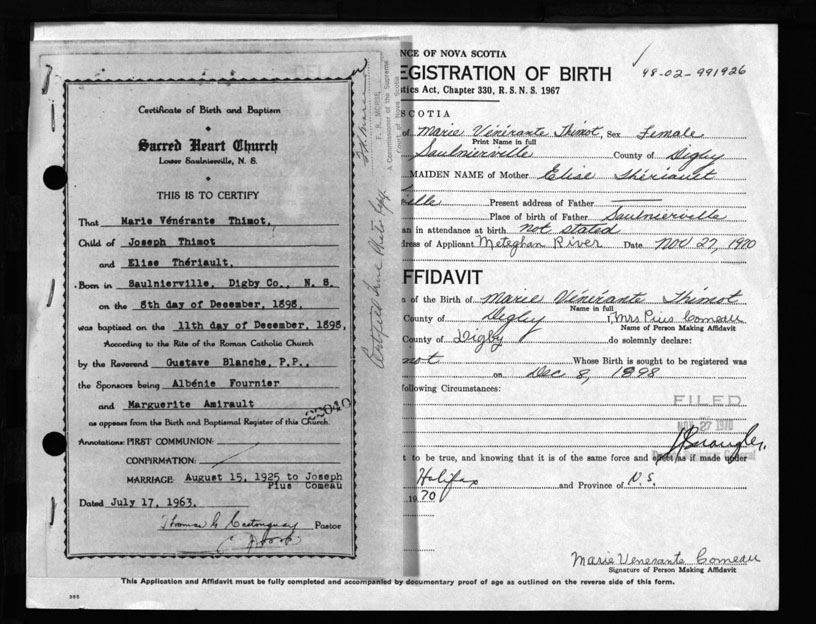 Certificate of Birth and Baptism
Sacred Heart Church
Lower Saulnierville, N. S.
THIS IS TO CERTIFY
That Marie Vénérante Thimot,
Child of Joseph Thimot
and Elise Thériault,
Born in Saulnierville, Digby Co., N. S.
on the 8th day of December, 1898,
was baptised on the 11th day of December, 1898,
According to the Rite of the Roman Catholic Church
by the Reverend Gustave Blanche, P.P.,
the Sponsors being Albénie Fournier
and Marguerite Amirault
as appears from the Birth and Baptismal Register of this Church.
Annotations: FIRST COMMUNION:
CONFIRMATION:
MARRIAGE: August 15, 1925 to Joseph
Pius Comeau
Dated July 17, 1963.
Thomas G Castonguay Pastor
Certified true Photo Copy
F. R. MORSE
A Commissioner of the Supreme
Court of Nova Scotia
NCE OF NOVA SCOTIA
EGISTRATION OF BIRTH
48-02-991926
tics Act, Chapter 330, R. S. N. S. 1967
SCOTIA
of Marie Vénérante Thimot, Sex Female
Print Name in full
Saulnierville County of Digby
MAIDEN NAME of Mother Elise Thériault
ville Present address of Father
Place of birth of Father Saulnierville
an in attendance at birth not stated
dress of Applicant Meteghan River Date Nov 27, 1970
FFIDAVIT
n of the Birth of Marie Vénérante Thimot
Name in full
County of Digby I, Mrs Pius Comeau
Name of Person Making Affidavit
County of Digby do solemnly declare:
mot Whose Birth is sought to be registered was
on Dec 8, 1898
following Circumstances:
FILED
NOV 27 1970
t to be true, and knowing that it is of the same force and effect as if made under
Halifax and Province of N.S.
1970
Marie Venerante Comeau
Signature of Person Making Affidavit
This Application and Affidavit must be fully completed and accompanied by documentary proof of age as outlined on the reverse side of this form.